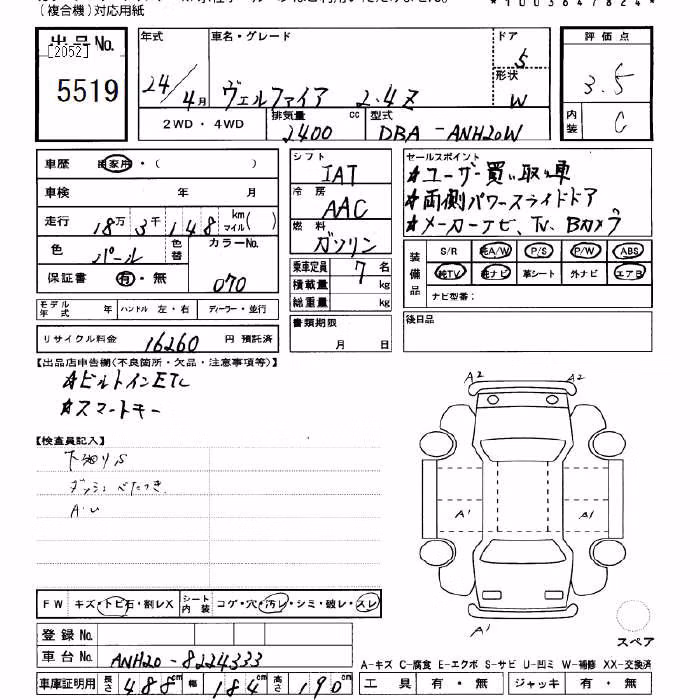 （複合機）対応用紙
*1003647824*
出品No.
[2052]
5519
年式
24/4月
車名・グレード
ヴェルファイア 2.4Z
ドア
5
形状
W
評価点
3.5
内装
C
2WD・4WD
排気量
2400 cc
型式
DBA-ANH20W
車歴 自家用・( )
車検 年 月
走行 18万3千148 km マイル( )
色 パール
色替
カラーNo.
070
保証書 有・無
シフト
IAT
冷房
AAC
燃料
ガソリン
乗車定員 7名
積載量 kg
総重量 kg
セールスポイント
★ユーザー買い取り車
★両側パワースライドドア
★メーカーナビ、TV、Bカメラ
装備品
S/R 純A/W P/S P/W ABS
純TV 純ナビ 革シート 外ナビ エアB
ナビ型番：
モデル年式 年 ハンドル 左・右 ディーラー・並行
書類期限
月 日
後日品
リサイクル料金 16260 円 預託済
【出品店申告欄(不良箇所・欠品・注意事項等)】
★ビルトインETC
★スマートキー
【検査員記入】
下廻りS
ダッシュべたつき
A2
A2
A1
A1
A1
FW キズ・トビ石・割レX シート内装 コゲ・穴・汚レ・シミ・破レ・スレ
登録No.
車台No. ANH20-8224333
スペア
A-キズ C-腐食 E-エクボ S-サビ U-凹ミ W-補修 XX-交換済
車庫証明用 長さ 488cm 幅 184cm 高さ 190cm
工具 有・無 ジャッキ 有・無